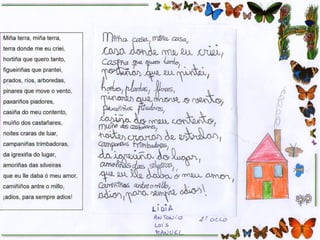 Miña terra, miña terra,
terra donde me eu criei,
hortiña que quero tanto,
figueiriñas que prantei,
prados, ríos, arboredas,
pinares que move o vento,
paxariños piadores,
casiña do meu contento,
muíño dos castañares,
noites craras de luar,
campaniñas trimbadoras,
da igrexiña do lugar,
amoriñas das silveiras
que eu lle daba ó meu amor,
camiñiños antre o millo,
¡adios, para sempre adios!
Miña casa, miña casa,
casa donde me eu criei,
que quero tanto,
que eu pintei,
pinares que move o vento,
paxariños piadores,
casiña do meu contento,
muiño dos castañares,
noites craras de estrelas,
campanas trimbadoras,
da igrexiña do lugar,
amoriñas das silveiras,
que eu lle daba o meu amor,
camiñiñas antre o millo,
adios, para sempre adios!
LIDIA
ANTONIO 2º CICLO
LOIS
MANUEL